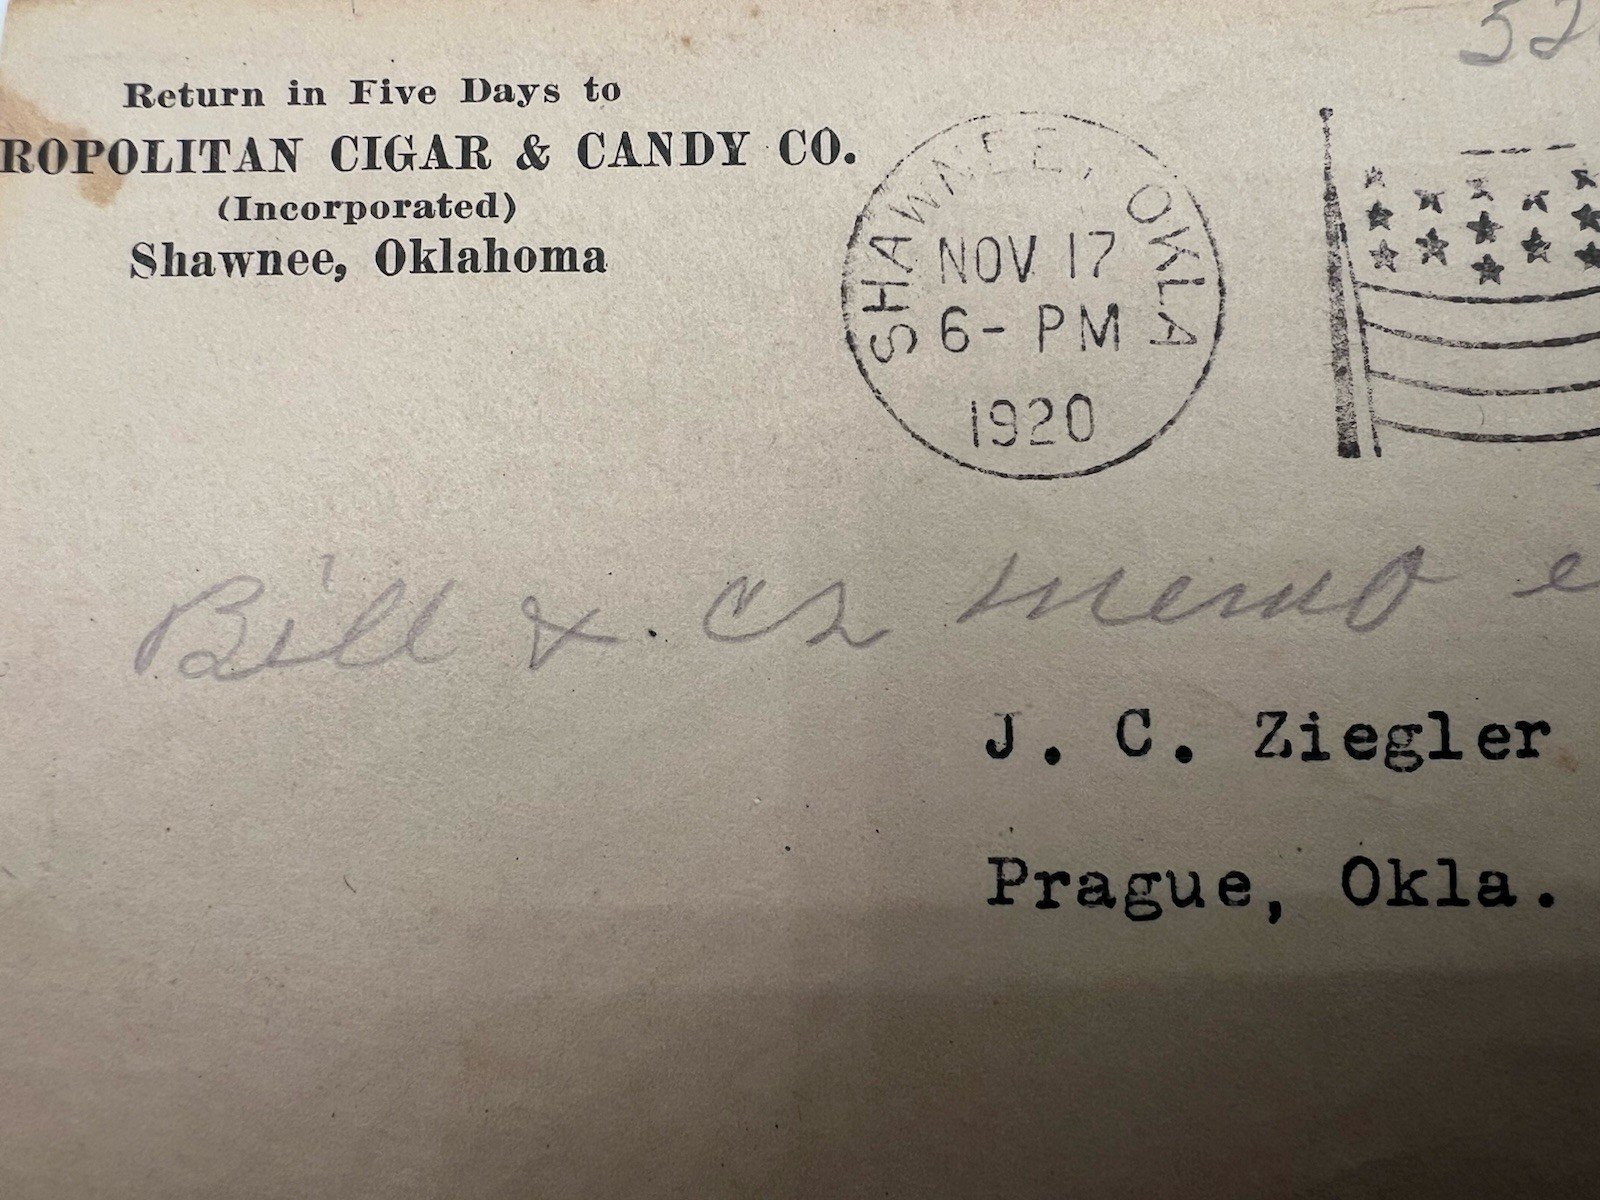 52
Return in Five Days to
ROPOLITAN CIGAR & CANDY CO.
(Incorporated)
Shawnee, Oklahoma
SHAWNEE, OKLA
NOV 17
6- PM
1920
Bill & Cr memo
J. C. Ziegler
Prague, Okla.